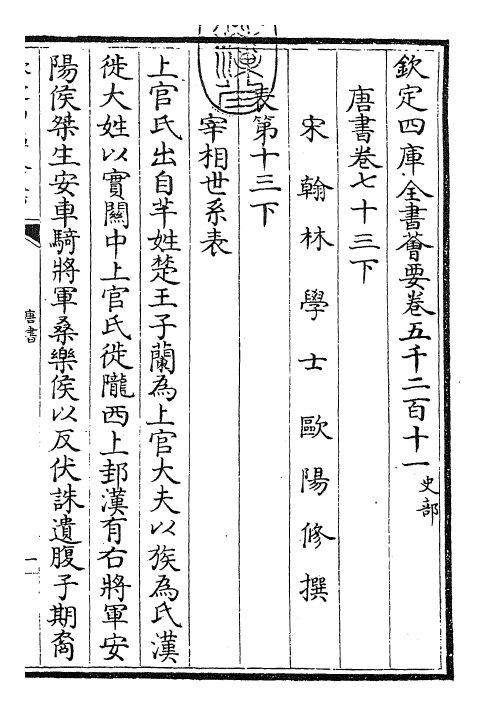 欽定四庫全書薈要卷五千二百十一 史部
唐書卷七十三下
宋翰林學士歐陽修撰
表第十三下
宰相世系表
上官氏出自芊姓楚王子蘭為上官大夫以族為氏漢
徙大姓以實關中上官氏徙隴西上邽漢有右將軍安
陽侯桀生安車騎將軍桑樂侯以反伏誅遺腹子期裔
唐書
一